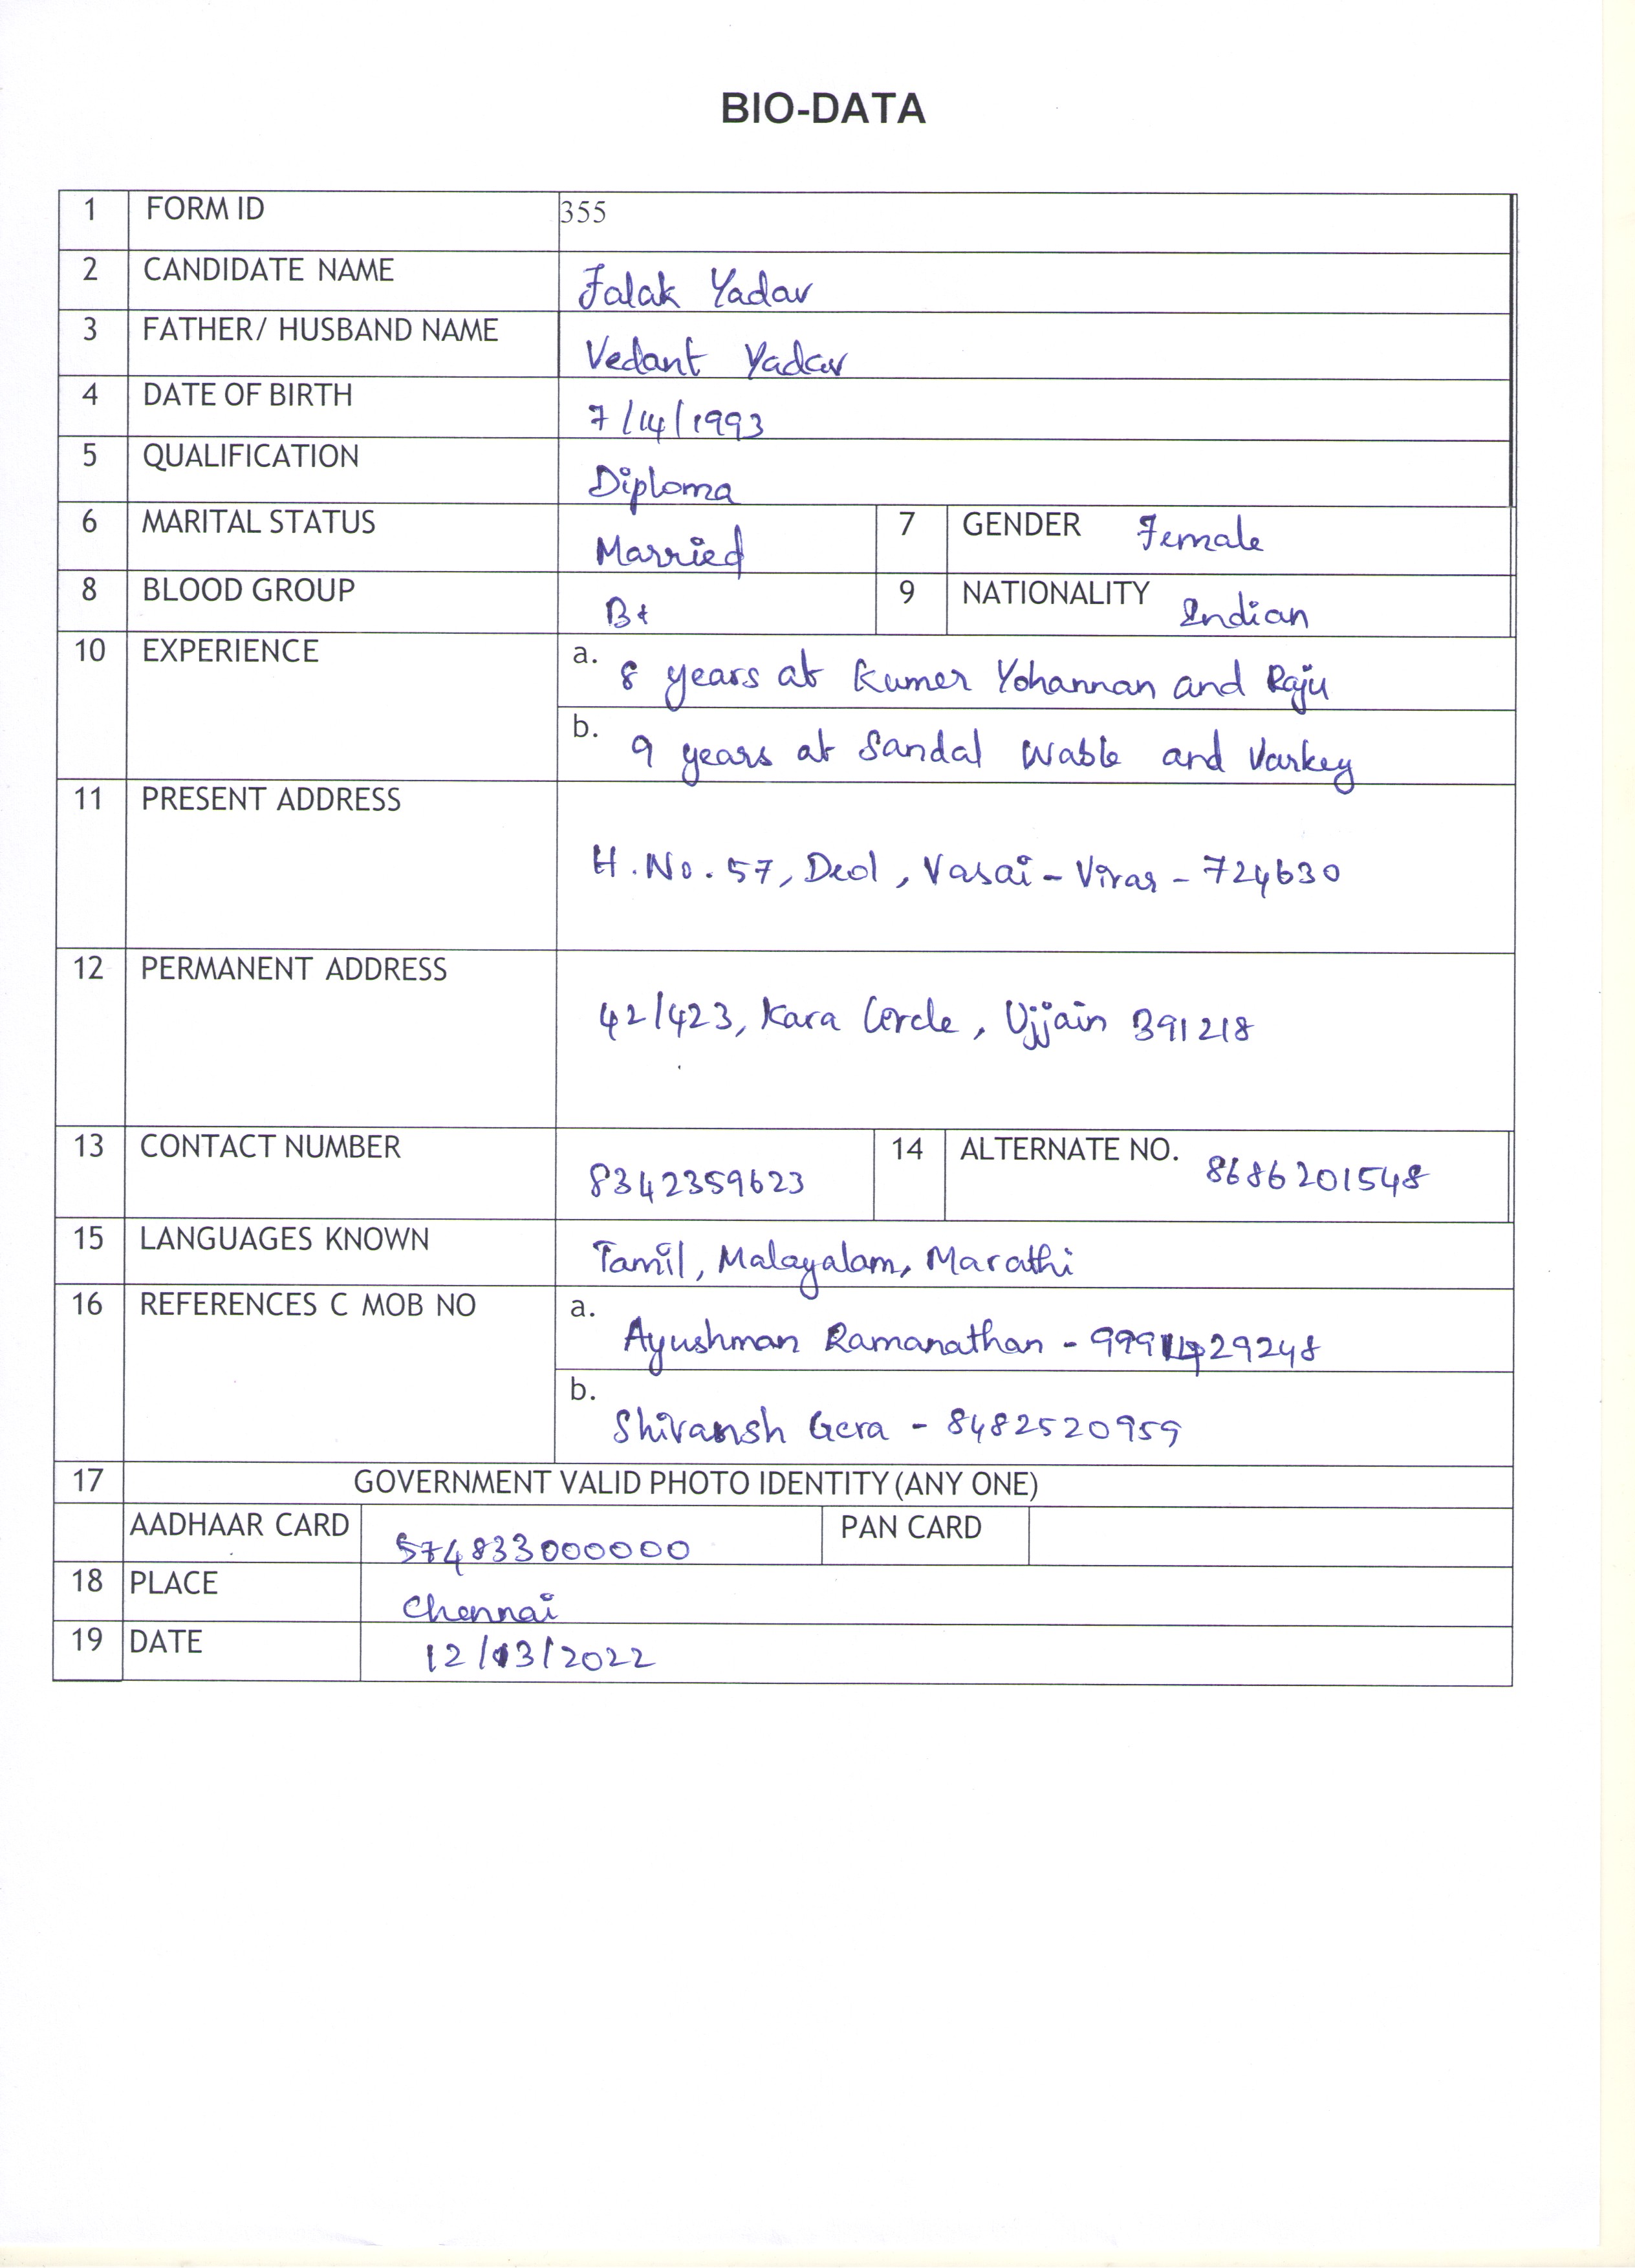 BIO-DATA
1 FORM ID 355
2 CANDIDATE NAME Falak Yadav
3 FATHER/ HUSBAND NAME Vedant Yadav
4 DATE OF BIRTH 7/14/1993
5 QUALIFICATION Diploma
6 MARITAL STATUS Married 7 GENDER Female
8 BLOOD GROUP B+ 9 NATIONALITY Indian
10 EXPERIENCE a. 8 years at Kumer Yohannan and Raju
b. 9 years at Sandal Wable and Varkey
11 PRESENT ADDRESS
H.No. 57, Deol, Vasai-Virar - 724630
12 PERMANENT ADDRESS
42/423, Kara Circle, Ujjain 391218
13 CONTACT NUMBER 8342359623 14 ALTERNATE NO. 8686201548
15 LANGUAGES KNOWN Tamil, Malayalam, Marathi
16 REFERENCES C MOB NO a. Ayushman Ramanathan -
b. Shivansh Gera - 8482520959
17 GOVERNMENT VALID PHOTO IDENTITY (ANY ONE)
AADHAAR CARD 574833000000 PAN CARD
18 PLACE Chennai
19 DATE 12/03/2022